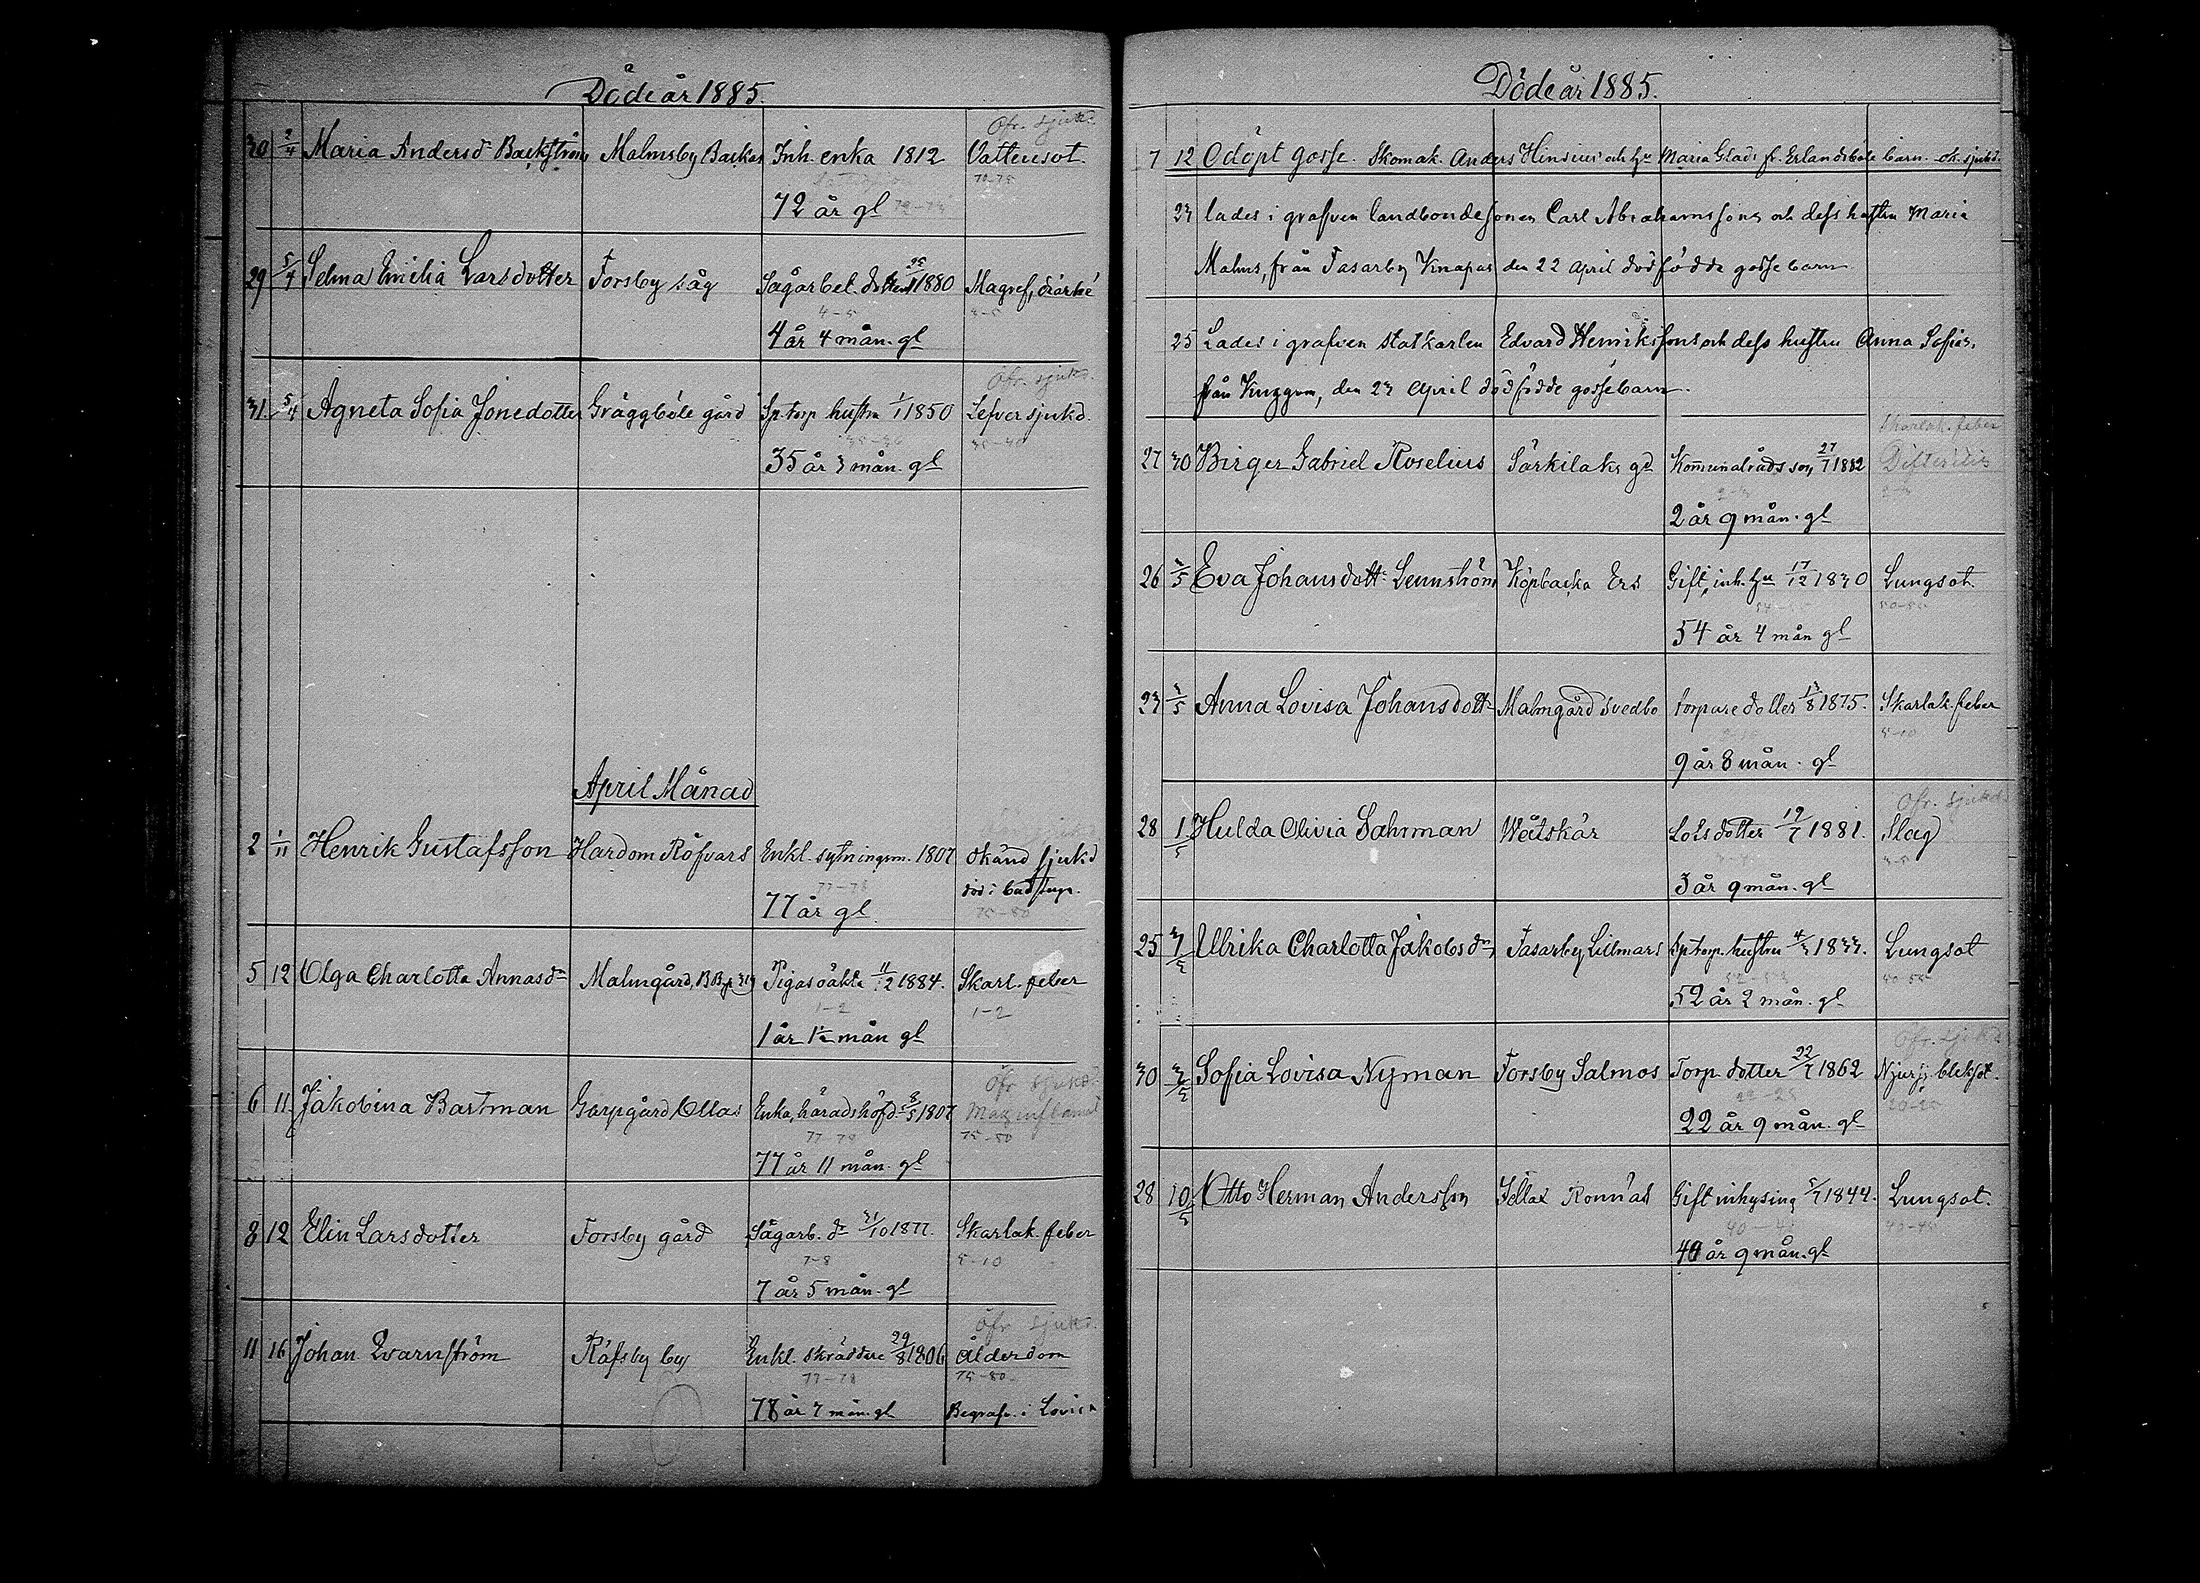 Döde år 1885.
30 2/4 Maria Andersd Backström Malmsby Backas Inh. enka 1812 Vattensot.
Öfr. sjukd.
70-75
72 år gl 72-73
29 5/4 Selma Emilia Larsdotter Forsby såg Sågarbet. dotter 25/11 1880 Magref, diarhé
4-5
4 år 4 mån. gl
Öfr. sjukd.
31. 5/4 Agneta Sofia Jonedotter Gräggböle gård Sp torp hustru 1/1 1850 Lefversjukd.
35-36 35-40
35 år 3 mån. gl
April Månad
2 1/11 Henrik Gustafsson Hardom Röfvars Enkl. sytningsm. 1807 Okänd sjukd
död i badstuga.
77-78
77 år gl. 75-80
5 12 Olga Charlotta Annasd Malmgård, Pigas oäkta 11/2 1884. Skarl. feber
1-2 1-2
1 år 1½ mån gl
Öfr. sjukd.
6 11 Jakobina Bartman Garpgård Ollas Enka, häradshöfd. 8/5 1807 Maginflamat
77-78 75-80
77 år 11 mån. gl
8 12 Elin Larsdotter Forsby gård Sågarb. dr 31/10 1877. Skarlak. feber
7-8 5-10
7 år 5 mån. gl
Öfr. sjukd.
11 16 Johan Qvarnström Räfsby by Enkl. skräddare 29/8 1806 Ålderdom
77-78 75-80
78 år 7 mån. gl Begrafv. i Lovisa
Döde år 1885.
7 12 Odöpt gosse. Skomak. Anders Hinsius och hu Maria Glads fr. Erlandsböle barn. ok. sjukd.
23 lades i grafven landbondesonen Carl Abrahamssons och dess hustru Maria
Malms, från Tasarby Knapas den 22 April dödfödde gossebarn
25 Lades i grafven statkarlen Edvard Henrikssons och dess hustru Anna Sofias,
från Kuggom, den 23 April dödfödde gossebarn.
Skarlak. feber
27 30 Birger Gabriel Roselius Särkilaks gd Kommunalråds son 27/7 1882 Difteritis
2-3 2-3
2 år 9 mån. gl
26 3/5 Eva Johansdott. Lennström Köpbacka Ers Gift, inh. hu 17/12 1830 Lungsot.
54 år 4 mån gl
23 3/5 Anna Lovisa Johansdott Malmgård Svedbo torpare dotter 13/8 1875. Skarlak. feber
5-10
9 år 8 mån. gl
Öfr. sjukd.
28 1/5 Hulda Olivia Sahrman Wåtskär Lots dotter 19/7 1881. Slag
3 år 9 mån. gl
25 3/5 Ulrika Charlotta Jakobsdr Tasarby, Lillmars Sp torp. hustru 4/3 1833. Lungsot
52 år 2 mån. gl
Öfr. sjukd.
30 3/5 Sofia Lovisa Nyman Forsby Salmos Torp. dotter 22/7 1862 Njurj. bleksot.
22 år 9 mån. gl
28 10/5 Otto Herman Andersson Tellas Rönnäs Gift inhysing 5/7 1844. Lungsot.
40-45
40 år 9 mån. gl